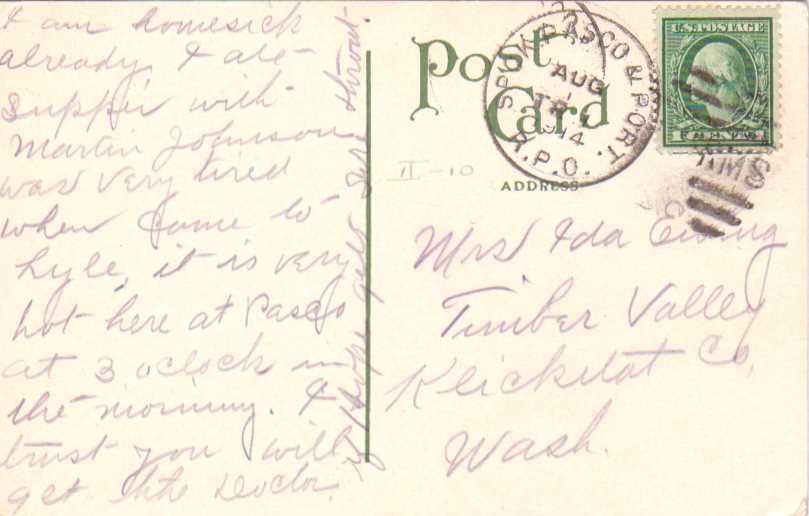 I am homesick
already I ate
supper with
Martin Johnson
was very tired
when came to
Lyle, it is very
hot here at Pasco
at 3 oclock in
the morning. I
trust you will
get the Doctor.
if throat gets
Post
Card
SPOK. PASCO & PORT.
AUG
1
TR
1914
R.P.O.
RMS
U.S. POSTAGE
II-10
ADDRESS
Mrs Ida Ewing
Timber Valley
Klickitat Co,
Wash.